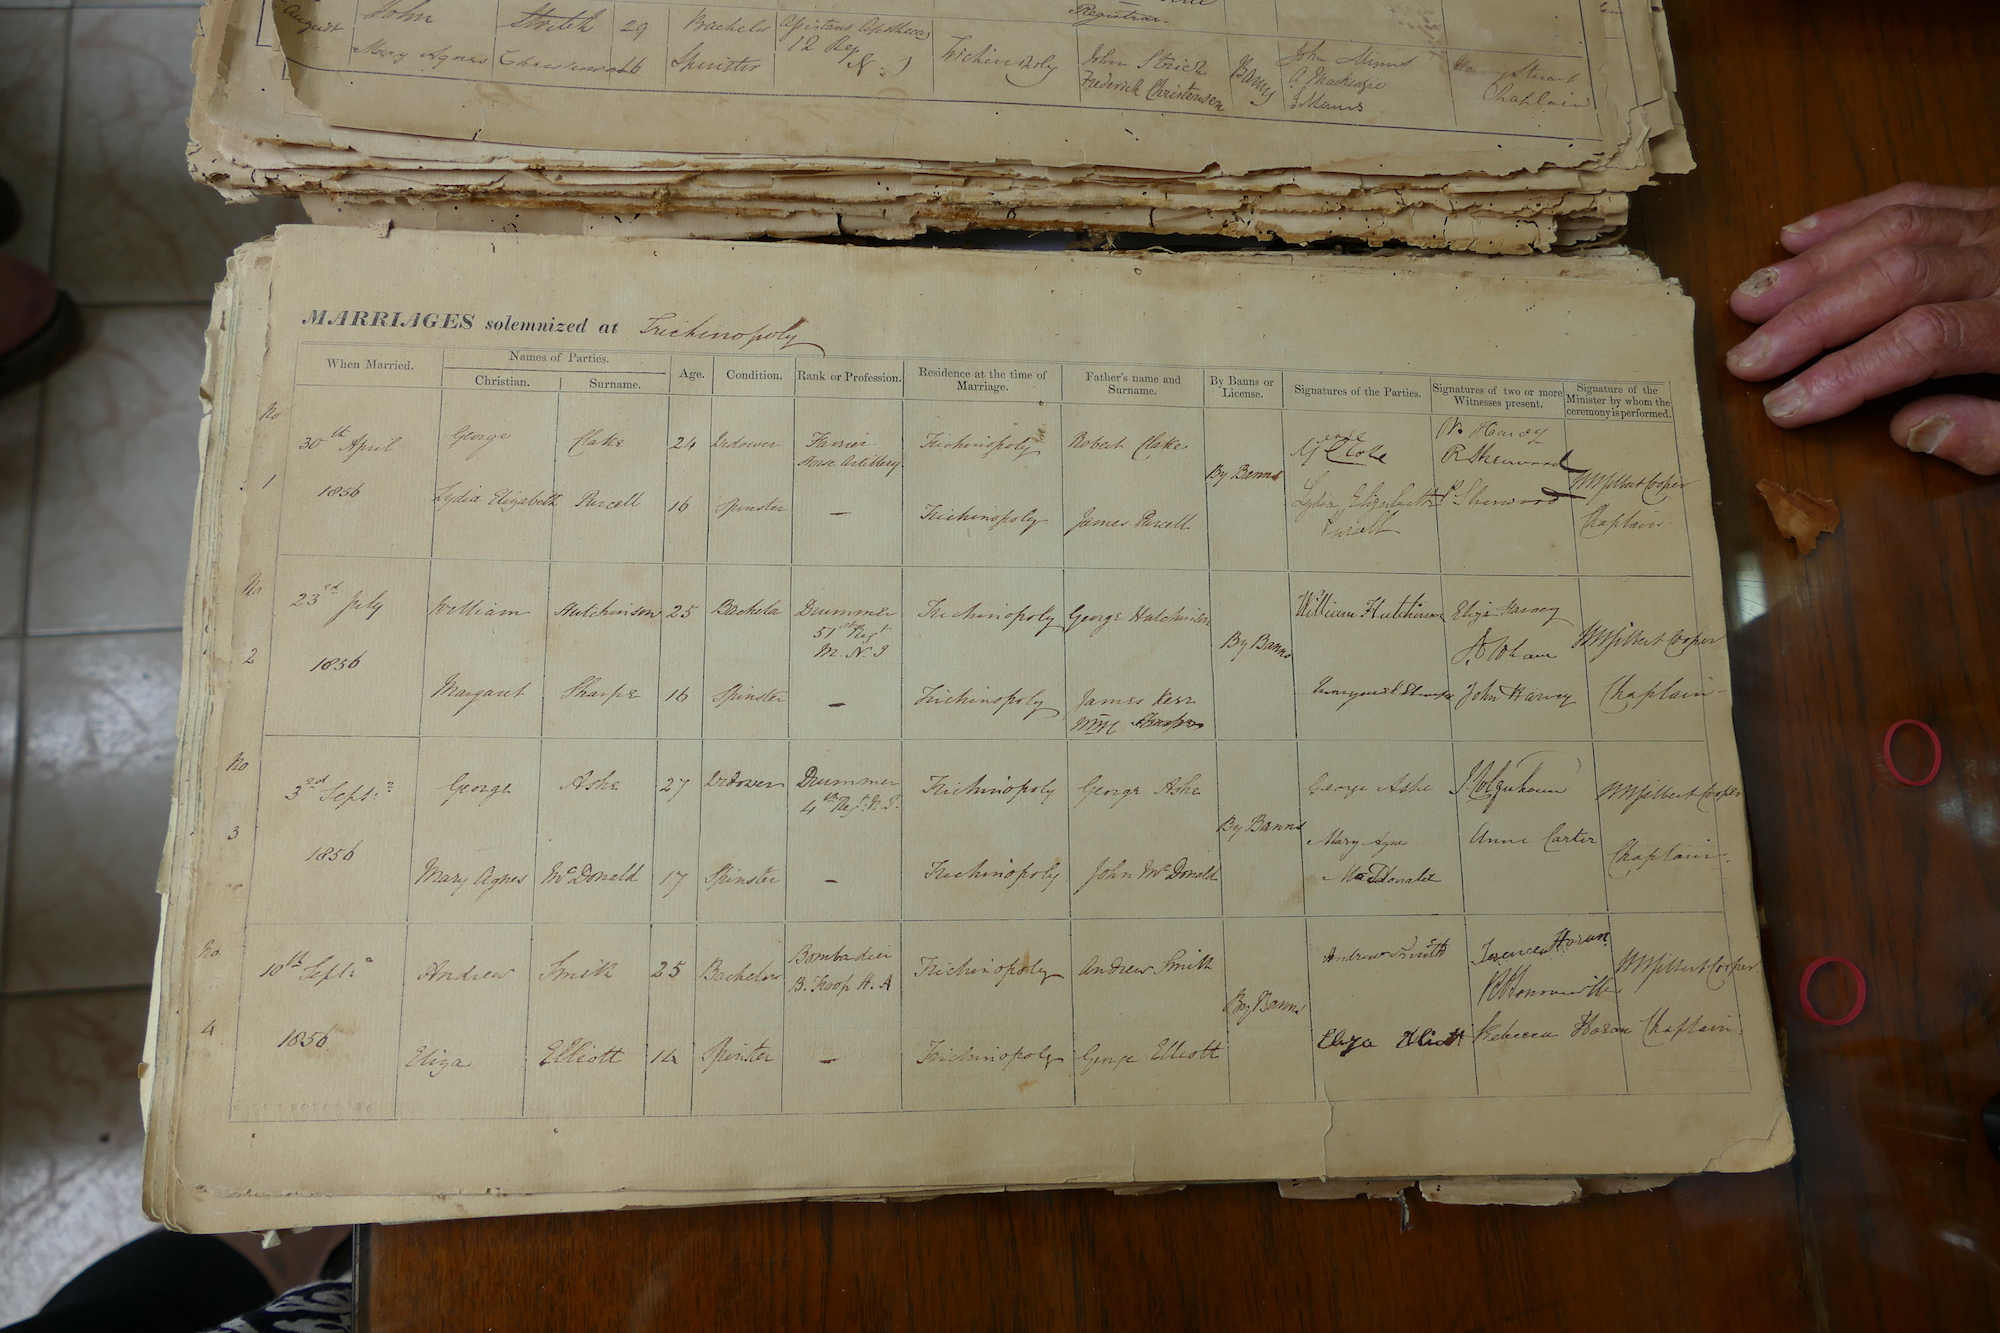 Registrar
August John 29 Bachelor Assistant Apothecary John Minns
Mary Agnes Spinster 12 Reg N. I Trichinopoly Frederick Christensen Banns A Mackenzie Stuart
J Minns Chaplain
MARRIAGES solemnized at Trichinopoly
When Married. Names of Parties. Age. Condition. Rank or Profession. Residence at the time of Marriage. Father's name and Surname. By Banns or License. Signatures of the Parties. Signatures of two or more Witnesses present. Signature of the Minister by whom the ceremony is performed.
Christian. Surname.
No 30th April George Clake 24 Widower Farrier Horse Artillery Trichinopoly Robert Clake W. Hardy R Sherwood
1 1856 Lydia Elizabeth Purcell 16 Spinster — Trichinopoly James Purcell By Banns Lydia Elizabeth Sherwood W W Gilbert Cooper Chaplain
No 23rd July William Hutchinson 25 Bachelor Drummer 51st Regt M. N. I Trichinopoly George Hutchinson William Hutchinson Eliza Harvey
2 1856 Margaret Sharpe 16 Spinster — Trichinopoly James Kerr By Banns John Harvey W W Gilbert Cooper Chaplain
No 3rd Septr George Ashe 27 Widower Drummer 4th Regt N. I. Trichinopoly George Ashe George Ashe J. Colquhoun
3 1856 Mary Agnes McDonald 17 Spinster — Trichinopoly John McDonald By Banns Mary Agnes MacDonald Anne Carter W W Gilbert Cooper Chaplain
No 10th Septr Andrew Smith 25 Bachelor Bombadier B. Troop H. A Trichinopoly Andrew Smith Andrew Smith Terence Horan
4 1856 Eliza Elliott 16 Spinster — Trichinopoly George Elliott By Banns Eliza Elliott Rebecca Horan W W Gilbert Cooper Chaplain